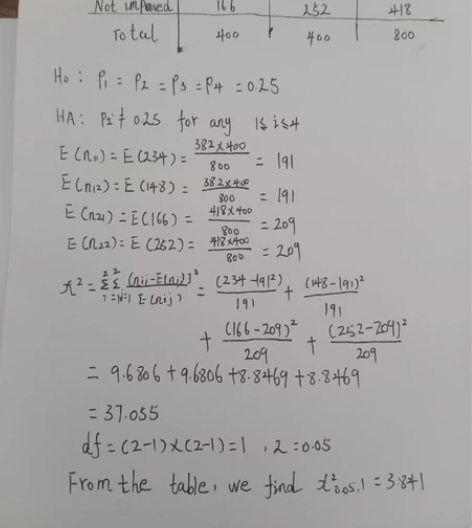 Not improved 166 252 418
Total 400 400 800
Ho: P1 = P2 = P3 = P4 = 0.25
HA: Pi ≠ 0.25 for any 1≤i≤4
E(n11) = E(234) = 382×400/800 = 191
E(n12) = E(148) = 382×400/800 = 191
E(n21) = E(166) = 418×400/800 = 209
E(n22) = E(252) = 418×400/800 = 209
x² = Σ²i=1 Σ²j=1 [nij-E(nij)]²/E(nij) = (234-191²)/191 + (148-191)²/191
+ (166-209)²/209 + (252-209)²/209
= 9.6806 + 9.6806 + 8.8469 + 8.8469
= 37.055
df = (2-1)×(2-1) = 1 , 2 = 0.05
From the table, we find x²0.05,1 = 3.841